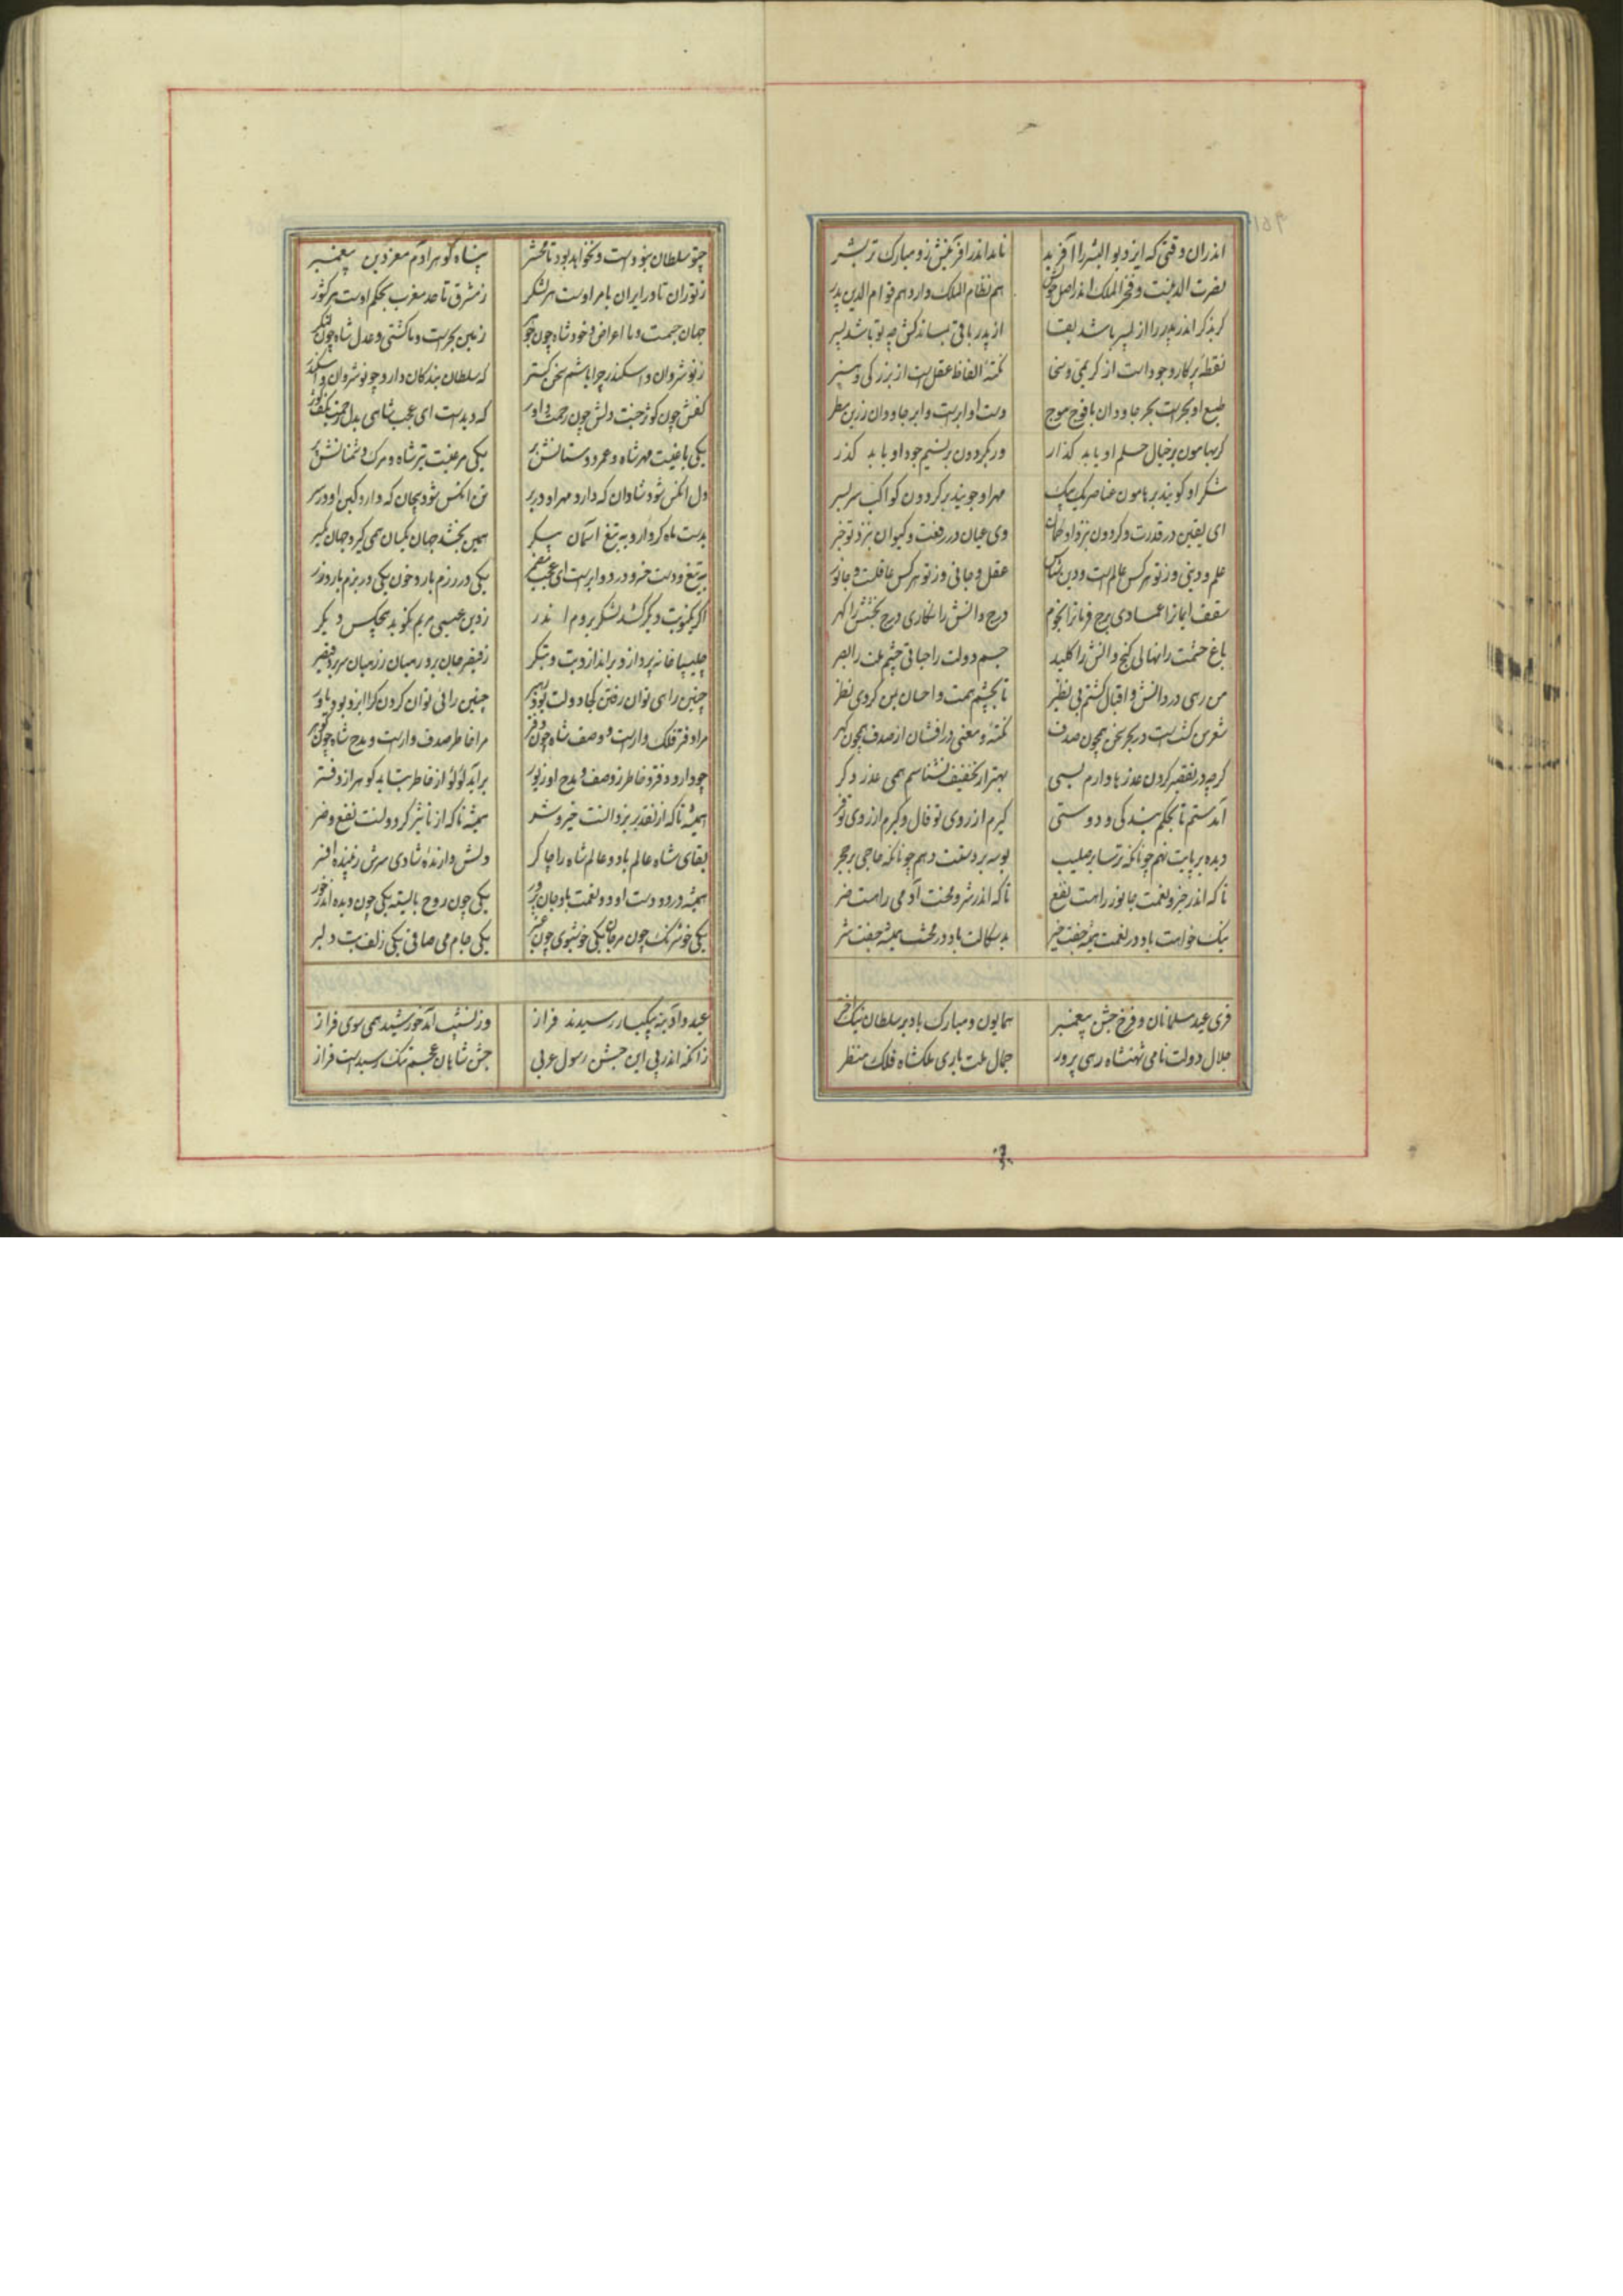 اندران وقتی که ایزد بو البشر را آفرید نامد اندر آفرینش زو مبارک تر بشر
نصرت الدینست و فخر الملک اندر اصل هم نظام الملک دارد هم قوام الدین پدر
کر بذکر اندر پدر را از پسر باشد بقا از پدر باقی بماند کش چو تو باشد پسر
نقطه پرکار وجود است از کریمی و سخا نکته الفاظ عقلست از بزرگی و هنر
طبع او بحر است بحر جاودان با فوج موج دست او ابر است و ابر جاودان زرین مطر
کر بهامون بر خیال حلم او یابد کذار ور بکردون بر نسیم جود او یابد کذر
شکر او کویند بر هامون عناصر یک بیک مهر او جویند بر کردون کواکب سربسر
ای یقین در قدرت و کردون بنزد او کمان وی عیان در رفعت و کیوان بنزد تو خبر
علم و دینی وز تو هر کس عالمست و دین عقل و جانی وز تو هر کس عاقلست و جانور
سقف ایمانرا عمادی برج فرمانرا نجوم درج دانش را نکاری درج بخشش را کهر
باغ حشمت را نهالی کنج دانش را کلید جسم دولت را حیاتی چشم ملت را بصر
من رهی در دانش و اقبال کشتم بی نظیر تا بچشم همت و احسان بمن کردی نظر
شعر من کشتست در بحر سخن همچون صدف نکته و معنی در افشان از صدف همچون کهر
کرچه در تقصیر کردن عذرها دارم بسی بهتر از تخفیف نشناسم همی عذر دکر
آمدستم تا بحکم بندکی و دوستی کیرم از روی تو فال و کیرم از روی تو فر
دیده بر پایت نهم چونانکه ترسا بر صلیب بوسه بر دستت دهم چونانکه حاجی بر حجر
تا که اندر خیر و نعمت جانور را هست نفع تا که اندر شر و محنت آدمی را هست ضر
نیک خواهت باد در نعمت همیشه جفت خیر بد سکالت باد در محنت همیشه جفت شر
فری عید مسلمانان و فرخ جشن پیغمبر همایون و مبارک باد بر سلطان نیک اختر
جلال دولت نامی شهنشاه رهی پرور جمال ملت باری ملکشاه فلک منظر
چنو سلطان نبودست و نخواهد بود تا محشر پناه کوهر آدم معز دین پیغمبر
ز توران تا در ایران بامر اوست هر لشکر ز مشرق تا حد مغرب بحکم اوست هر کشور
جهان جسمست و ما اعراض و خود شاه چون جوهر زمین بحر است و ما کشتی و عدل شاه چون لنکر
ز نوشروان و اسکندر چرا باشم سخن کستر که سلطان بندکان دارد چو نوشروان و اسکندر
کفش چون کوثر جنت دلش چون رحمت داور که دیدست ای عجب شاهی بدل رحمت بکف کوثر
یکی باغیست مهر شاه و عمر دوستانش بر یکی مرغیست تیر شاه و مرک دشمنانش پر
دل آنکس شود شادان که دارد مهر او در بر تن آنکس شود پیچان که دارد کین او در سر
بدست ماه کردارو به تیغ آسمان پیکر همین بخشد جهان یکسان همی کیرد جهان یکسر
به تیغ و دست خسرو در دو ابر است ای عجب مضمر یکی در رزم بارد خون یکی در بزم بارد زر
اکر یکنوبت دیکر کشد لشکر بروم اندر ز دین عیسی مریم نکوید هیچکس دیکر
چلیپا خانه پردازد براندازد بت و بتکر ز قیصر جان برد رهبان ز رهبان سر برد قیصر
چنین راهی توان رفتن کجا دولت بود رهبر چنین رائی توان کردن کرا ایزد بود یاور
مرا دفتر فلک وارست و وصف شاه چون مرا خاطر صدف وارست و مدح شاه چون کوهر
چو دارد دفتر و خاطر ز وصف و مدح او زیور برآید لولو از خاطر بتابد کوهر از دفتر
همیشه تا که از تقدیر یزدانست خیر و شر همیشه تا که از تاثیر کردونست نفع و ضر
بقای شاه عالم باد و عالم شاه را چاکر دلش دارنده شادی سرش زیبنده افسر
همیشه در دو دست او دو نعمت باد جان پرور یکی چون روح بایسته یکی چون دیده اندر خور
یکی خوشرنک چون مرجان یکی خوشبوی چون عنبر یکی جام می صافی یکی زلف بت دلبر
عید و آدینه بیکبار رسیدند فراز وز نشیب آمد خورشید همی سوی فراز
زانکه اندر پی این جشن رسول عربی جشن شاهان عجم تنک رسیدست فراز